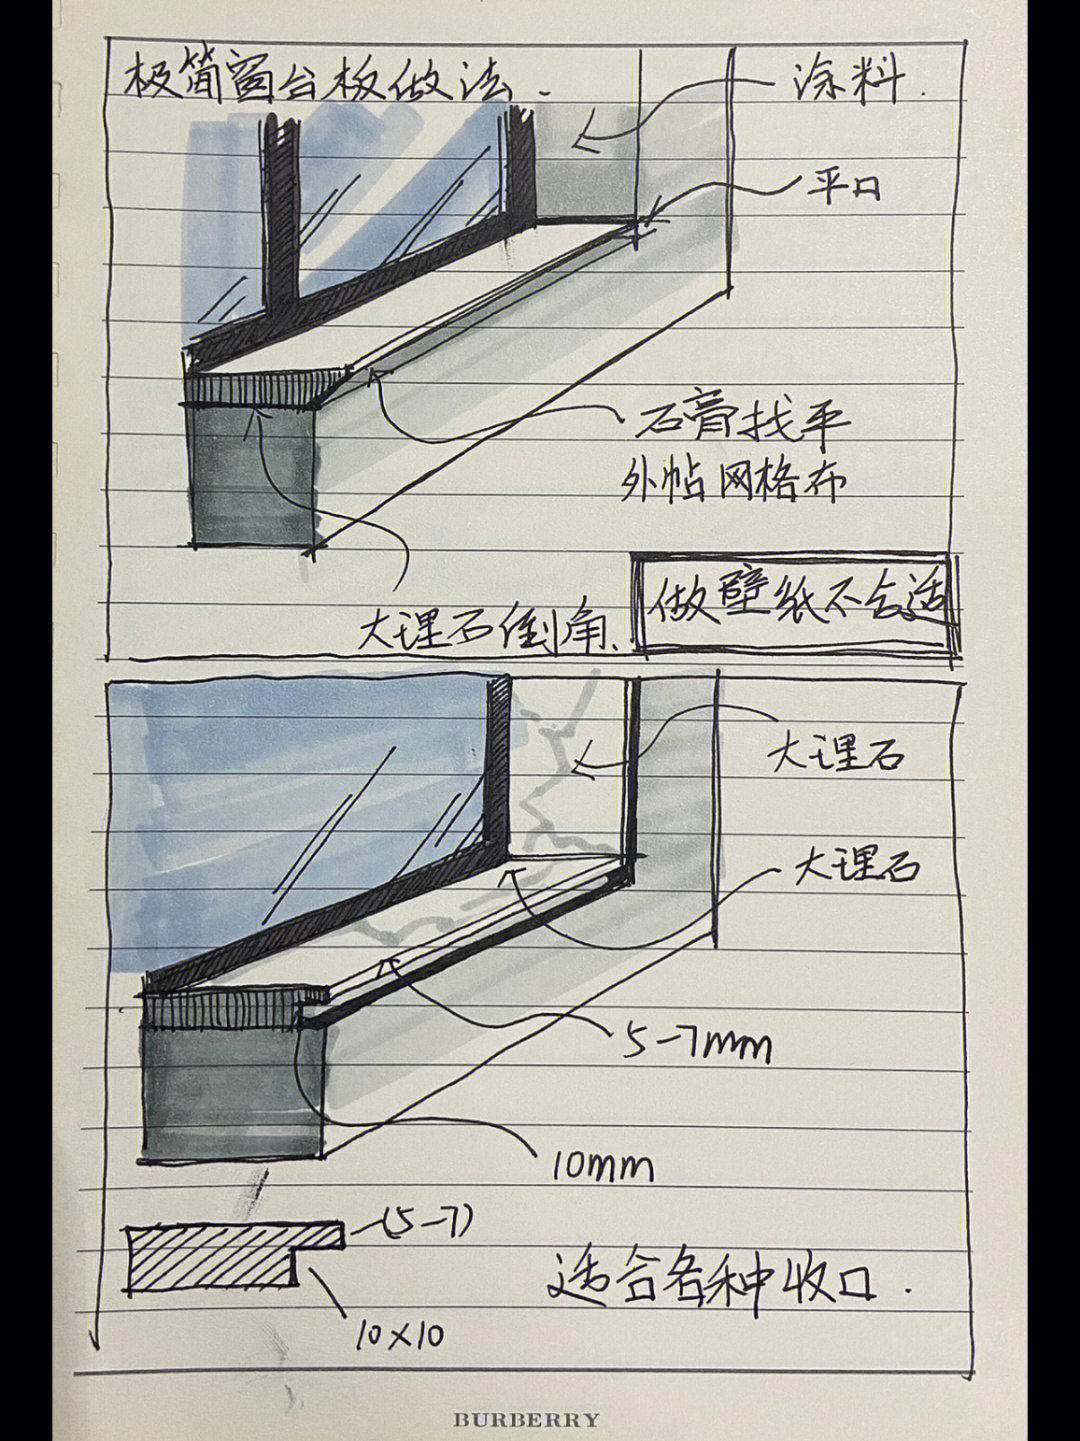 极简窗台板做法.
涂料.
平口
石膏找平
外帖网格布
大理石倒角.
做壁纸不合适
大理石
大理石
5-7mm
10mm
(5-7)
10×10
适合各种收口.
BURBERRY